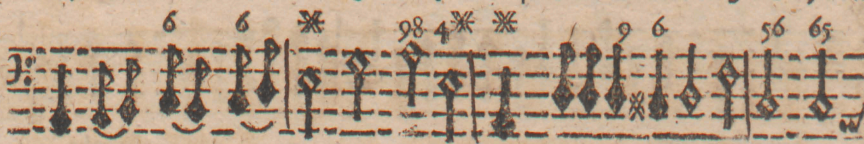 6 6 ※ 98 4※ ※ 9 6 56 65